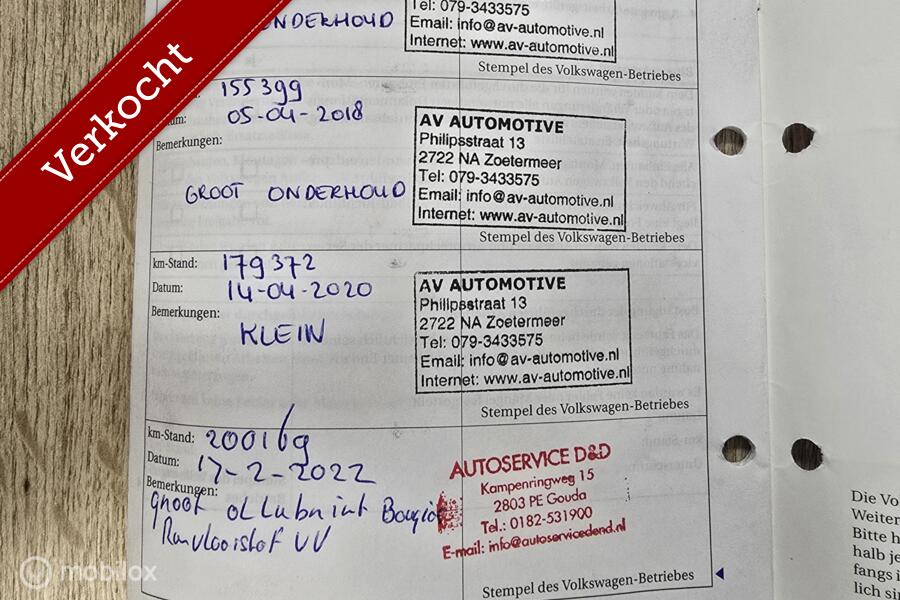 Verkocht
ONDERHOUD
Tel: 079-3433575
Email: info@av-automotive.nl
Internet: www.av-automotive.nl
Stempel des Volkswagen-Betriebes
155399
05-04-2018
Bemerkungen:
GROOT ONDERHOUD
AV AUTOMOTIVE
Philipsstraat 13
2722 NA Zoetermeer
Tel: 079-3433575
Email: info@av-automotive.nl
Internet: www.av-automotive.nl
Stempel des Volkswagen-Betriebes
km-Stand: 179372
Datum: 14-04-2020
Bemerkungen:
KLEIN
AV AUTOMOTIVE
Philipsstraat 13
2722 NA Zoetermeer
Tel: 079-3433575
Email: info@av-automotive.nl
Internet: www.av-automotive.nl
Stempel des Volkswagen-Betriebes
km-Stand: 200169
Datum: 17-2-2022
Bemerkungen:
groot
VV
AUTOSERVICE D&D
Kampenringweg 15
2803 PE Gouda
Tel.: 0182-531900
E-mail: info@autoservicedend.nl
Stempel des Volkswagen-Betriebes
Die Vo
Weiter
Bitte h
halb je
fangs i
lich sin
mobilox